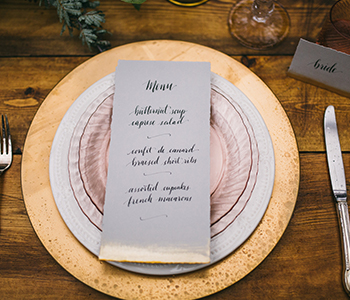 Menu
butternut soup
caprese salad
confit de canard
braised short rib
assorted cupcakes
french macarons
bride